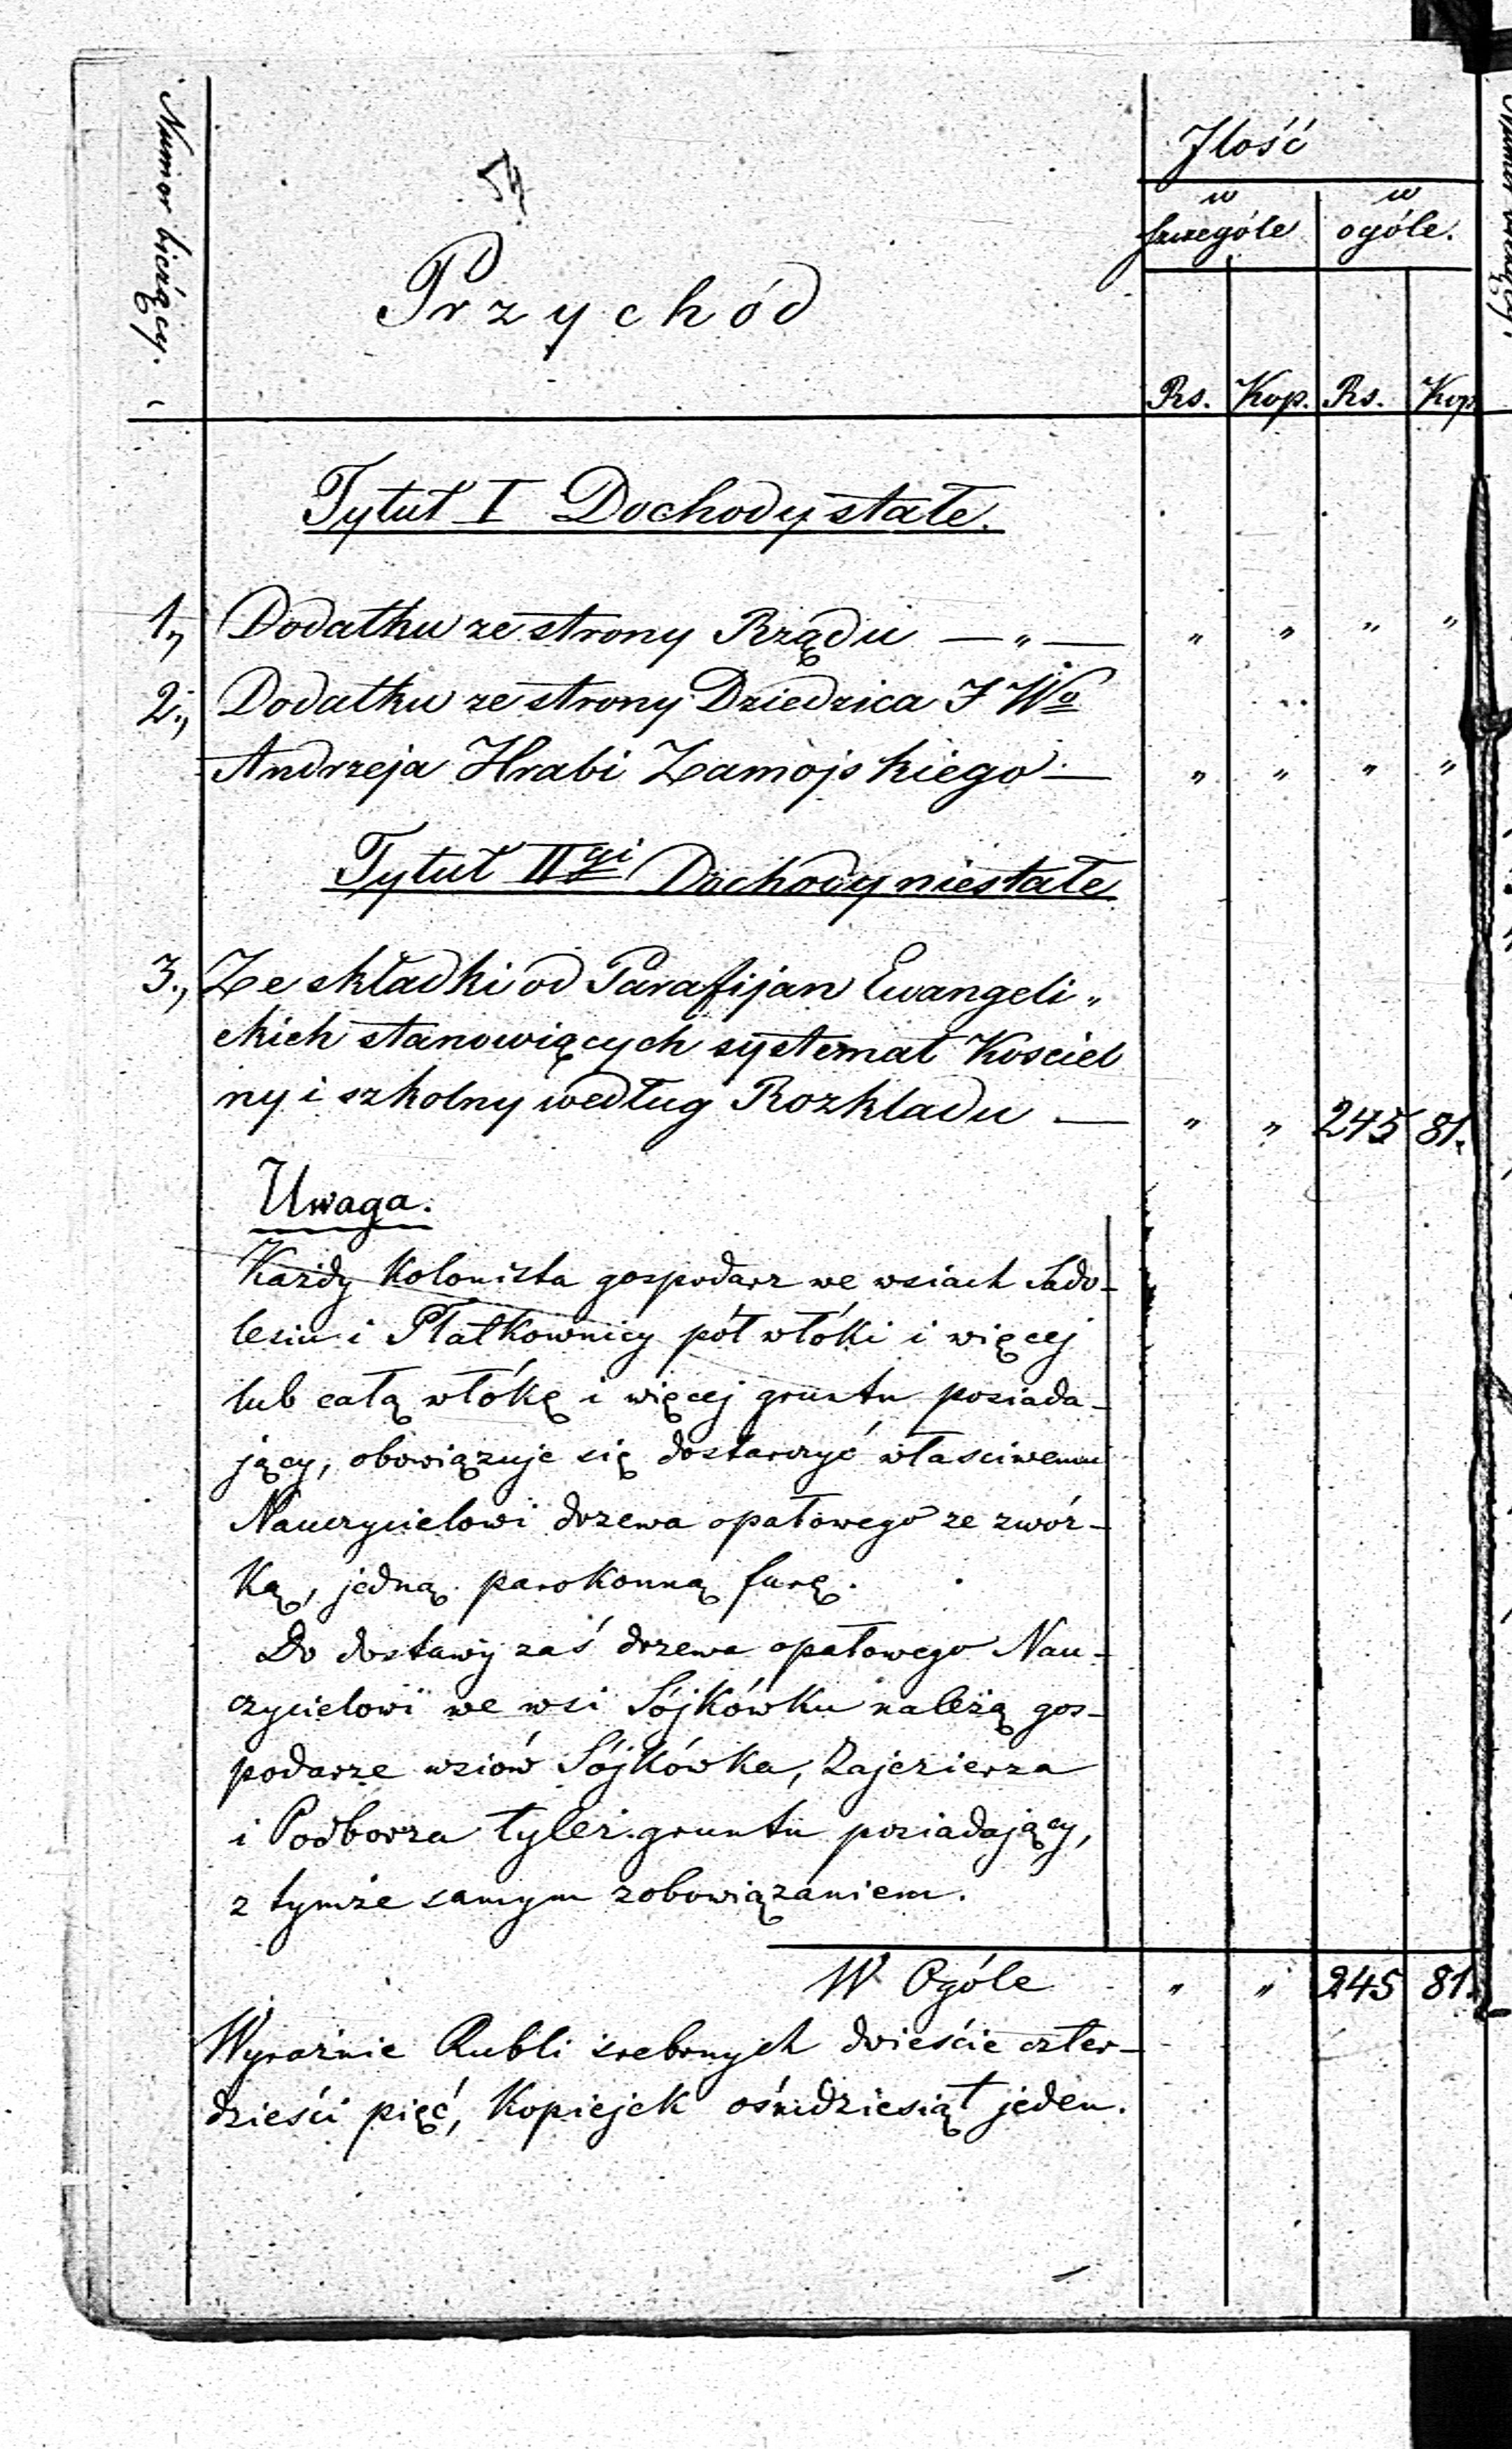 Numer bieżący.
Przychód
Jlość
w szczególe
w ogóle.
Rs. Kop. Rs. Kop
Tytuł I Dochody stałe.
1, Dodatku ze strony Rządu — „ — „ „ „ „
2., Dodatku ze strony Dziedzica J Wo
Andrzeja Hrabi Zamojskiego — „ „ „ „
Tytuł IIgi Dochody niestałe
3., Ze składki od Parafijan Ewangeli„
ckich stanowiących systemat Kościel
ny i szkolny według Rozkladu — „ „ 245 81.
Uwaga.
Każdy Kolonista gospodarz we wsiach Sado-
lesiu i Płatkownicy pół włóki i więcej
lub całą włókę i więcej gruntu posiada-
jący, obowiązuje się dostarczyć właściwemu
Nauczycielowi drzewa opałowego ze zwóz-
ką, jedną parokonną furę.
Do dostawy zaś drzewa opałowego Nau-
czycielowi we wsi Sójkówku należą gos-
podarze wsiów Sójkówka, Zajezierza
i Podborza tyleż gruntu posiadający,
z tymże samym zobowiązaniem.
W Ogóle „ „ 245 81.
Wyraźnie Rubli srebrnych dwieście czter-
dzieści pięć, Kopiejek ośmdziesiąt jeden.